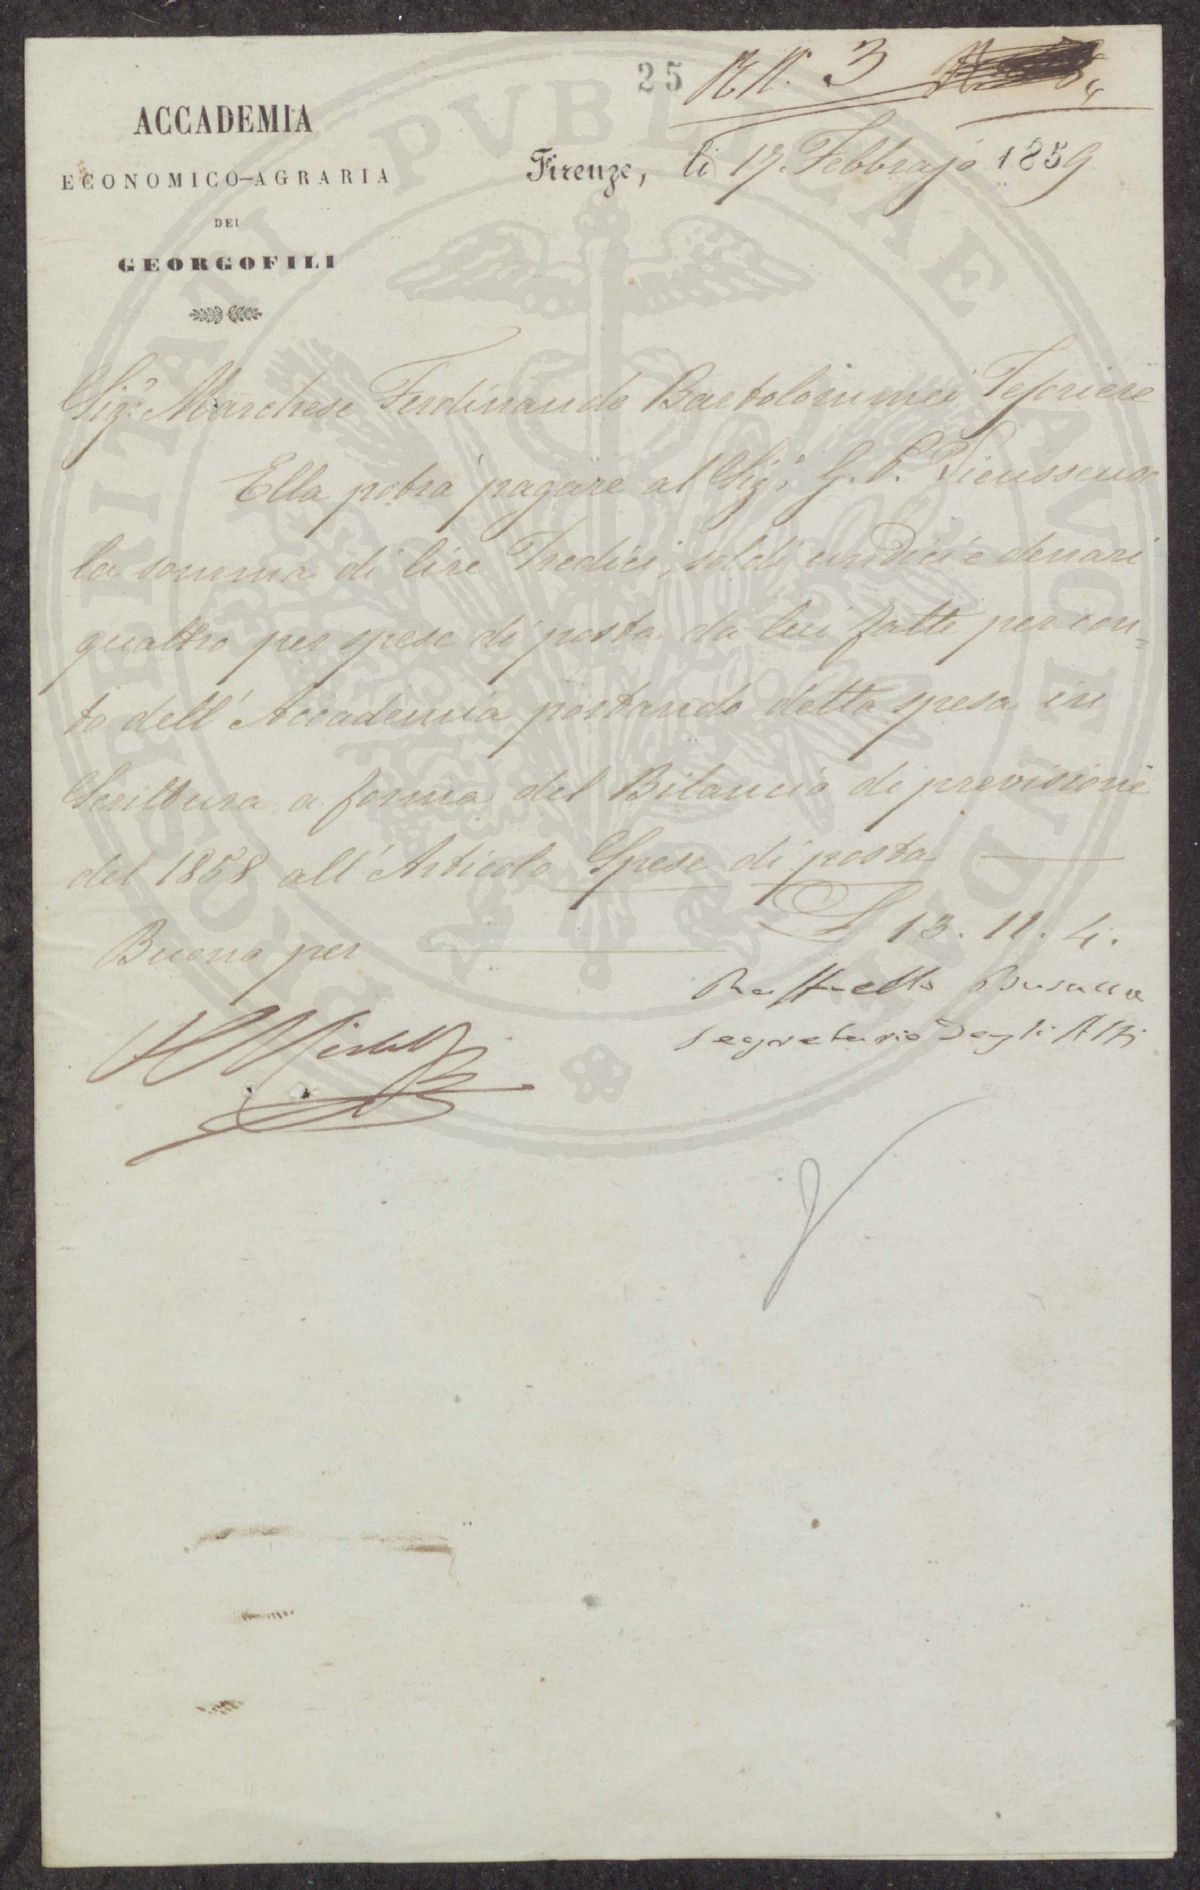 25
N. 3
ACCADEMIA
ECONOMICO-AGRARIA
DEI
GEORGOFILI
Firenze, li 17. Febbrajo 1859
Sigr. Marchese Ferdinando Bartolommei Tesoriere
Ella potrà pagare al Sigr. G. P. Vieusseux
la somma di lire Tredici, soldi undici e denari
quattro per spese di posta da lui fatte per con=
to dell' Accademia portando detta spesa in
Scrittura a forma del Bilancio di previsione
del 1858 all' Articolo Spese di posta
Buono per L 13. 11. 4.
Raffaello Busacca
Segretario degli Atti
PROSPERITATI PUBLICAE AUGENDAE